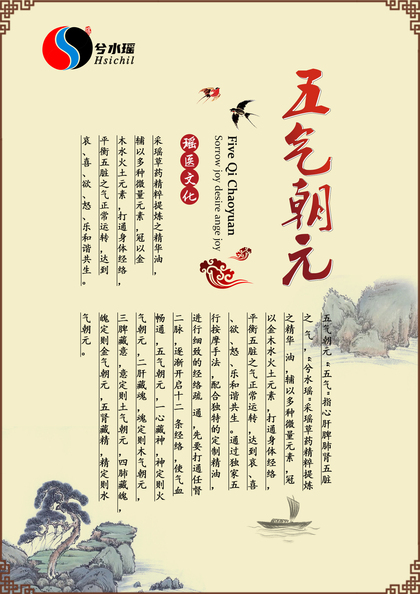 兮水瑶
Hsichil
五气朝元
Five Qi Chaoyuan
Sorrow joy desire ange joy
瑶医文化
采瑶草药精粹提炼之精华油,
辅以多种微量元素,冠以金
木水火土元素,打通身体经络,
平衡五脏之气正常运转,达到
哀、喜、欲、怒、乐和谐共生。
五气朝元,"五气"指心肝脾肺肾五脏
之气,"兮水瑶"采瑶草药精粹提炼
之精华油,辅以多种微量元素,冠
以金木水火土元素,打通身体经络,
平衡五脏之气正常运转,达到哀、喜
、欲、怒、乐和谐共生。通过独家五
行按摩手法,配合独特的定制精油,
进行细致的经络疏 通,先要打通任督
二脉,逐渐开启十二 条经络,使气血
畅通,五气朝元,一心藏神,神定则火
气朝元,二肝藏魂,魂定则木气朝元,
三脾藏意,意定则土气朝元,四肺藏魄,
魄定则金气朝元,五肾藏精,精定则水
气朝元。